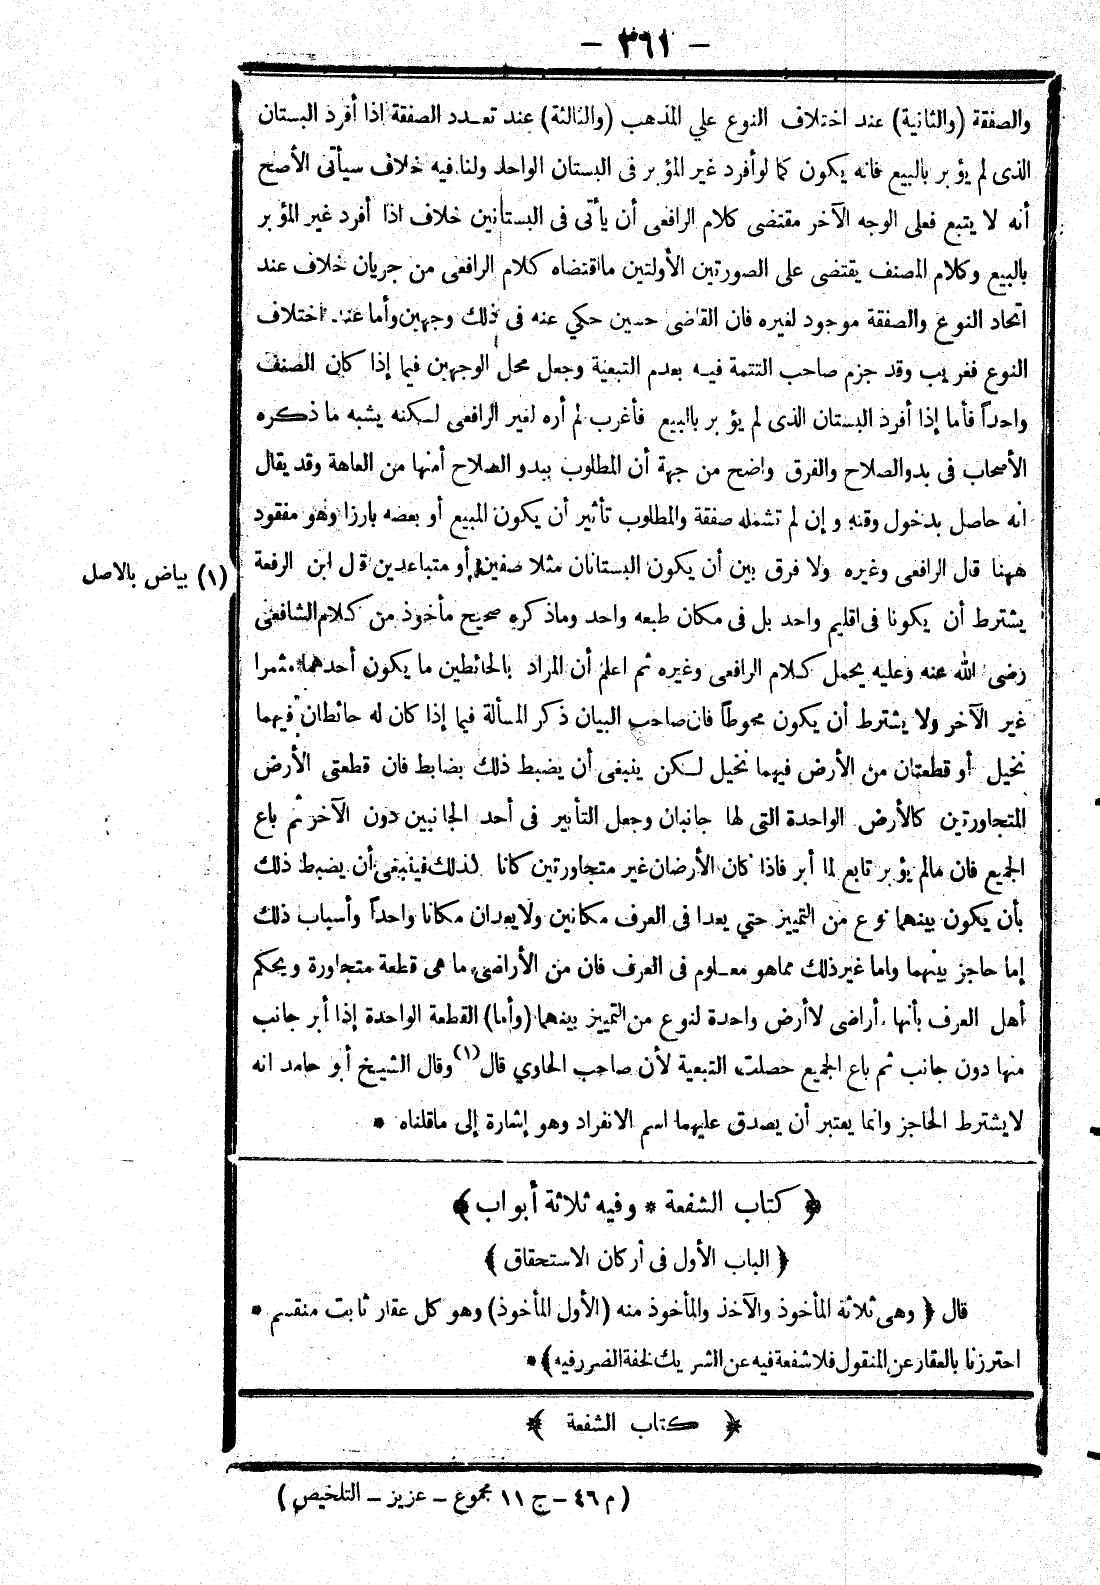 — ٣٦١ —
والصفقة (والثانية) عند اختلاف النوع علي المذهب (والثالثة) عند تعدد الصفقة اذا أفرد البستان
الذى لم يؤبر بالبيع فانه يكون كما لو أفرد غير المؤبر فى البستان الواحد ولنا فيه خلاف سيأتى الأصح
أنه لا يتبع فعلى الوجه الآخر مقتضى كلام الرافعى أن يأتى فى البستانين خلاف اذا أفرد غير المؤبر
بالبيع وكلام المصنف يقتضى على الصورتين الأولتين مااقتضاه كلام الرافعى من جريان خلاف عند
اتحاد النوع والصفقة موجود لغيره فان القاضى حسين حكي عنه فى ذلك وجهين وأما عند اختلاف
النوع فغريب وقد جزم صاحب التتمة فيه بعدم التبعية وجعل محل الوجهين فيما إذا كان الصنف
واحداً فأما إذا أفرد البستان الذى لم يؤبر بالبيع فأغرب لم أره لغير الرافعى لكنه يشبه ما ذكره
الأصحاب فى بدو الصلاح والفرق واضح من جهة أن المطلوب ببدو الصلاح أمنها من العاهة وقد يقال
انه حاصل بدخول وقته وإن لم تشمله صفقة والمطلوب تأثير أن يكون المبيع أو بعضه بارزا وهو مفقود
ههنا قال الرافعى وغيره ولا فرق بين أن يكون البستانان متلاصقين أو متباعدين قال ابن الرفعة
يشترط أن يكونا فى اقليم واحد بل فى مكان طبعه واحد وماذكره صحيح مأخوذ من كلام الشافعى
رضى الله عنه وعليه يحمل كلام الرافعى وغيره ثم اعلم أن المراد بالحائطين ما يكون أحدهما مثمرا
غير الآخر ولا يشترط أن يكون محوطاً فان صاحب البيان ذكر المسألة فيما إذا كان له حائطان فيهما
نخيل أو قطعتان من الأرض فيهما نخيل لكن ينبغى أن يضبط ذلك بضابط فان قطعتى الأرض
المتجاورتين كالأرض الواحدة التى لها جانبان وجعل التأبير فى أحد الجانبين دون الآخر ثم باع
الجميع فان مالم يؤبر تابع لما أبر فاذا كان الأرضان غير متجاورتين كانا كذلك فينبغى أن يضبط ذلك
بأن يكون بينهما نوع من التمييز حتي يعدا فى العرف مكانين ولا يعدان مكانا واحداً وأسباب ذلك
إما حاجز بينهما واما غير ذلك مماهو معلوم فى العرف فان من الأراضى ما هى قطعة متجاورة ويحكم
أهل العرف بأنها أراضى لا أرض واحدة لنوع من التمييز بينهما (وأما) القطعة الواحدة إذا أبر جانب
منها دون جانب ثم باع الجميع حصلت التبعية لأن صاحب الحاوي قال (١) وقال الشيخ أبو حامد انه
لا يشترط الحاجز وانما يعتبر أن يصدق عليهما اسم الانفراد وهو إشارة إلى ماقلناه *
(١) بياض بالاصل
﴿ كتاب الشفعة * وفيه ثلاثة أبواب ﴾
﴿ الباب الأول فى أركان الاستحقاق ﴾
قال ﴿ وهى ثلاثة المأخوذ والآخذ والمأخوذ منه (الأول المأخوذ) وهو كل عقار ثابت منقسم *
احترزنا بالعقار عن المنقول فلا شفعة فيه عن الشريك لخفة الضرر فيه ﴾ *
﴿ كتاب الشفعة ﴾
(م ٤٦ – ج ١١ مجموع – عزيز – التلخيص)